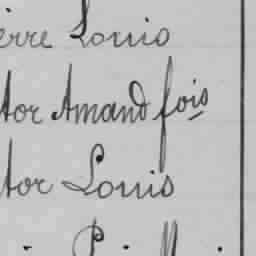 erre Louis
tor Amand fois
tor Louis